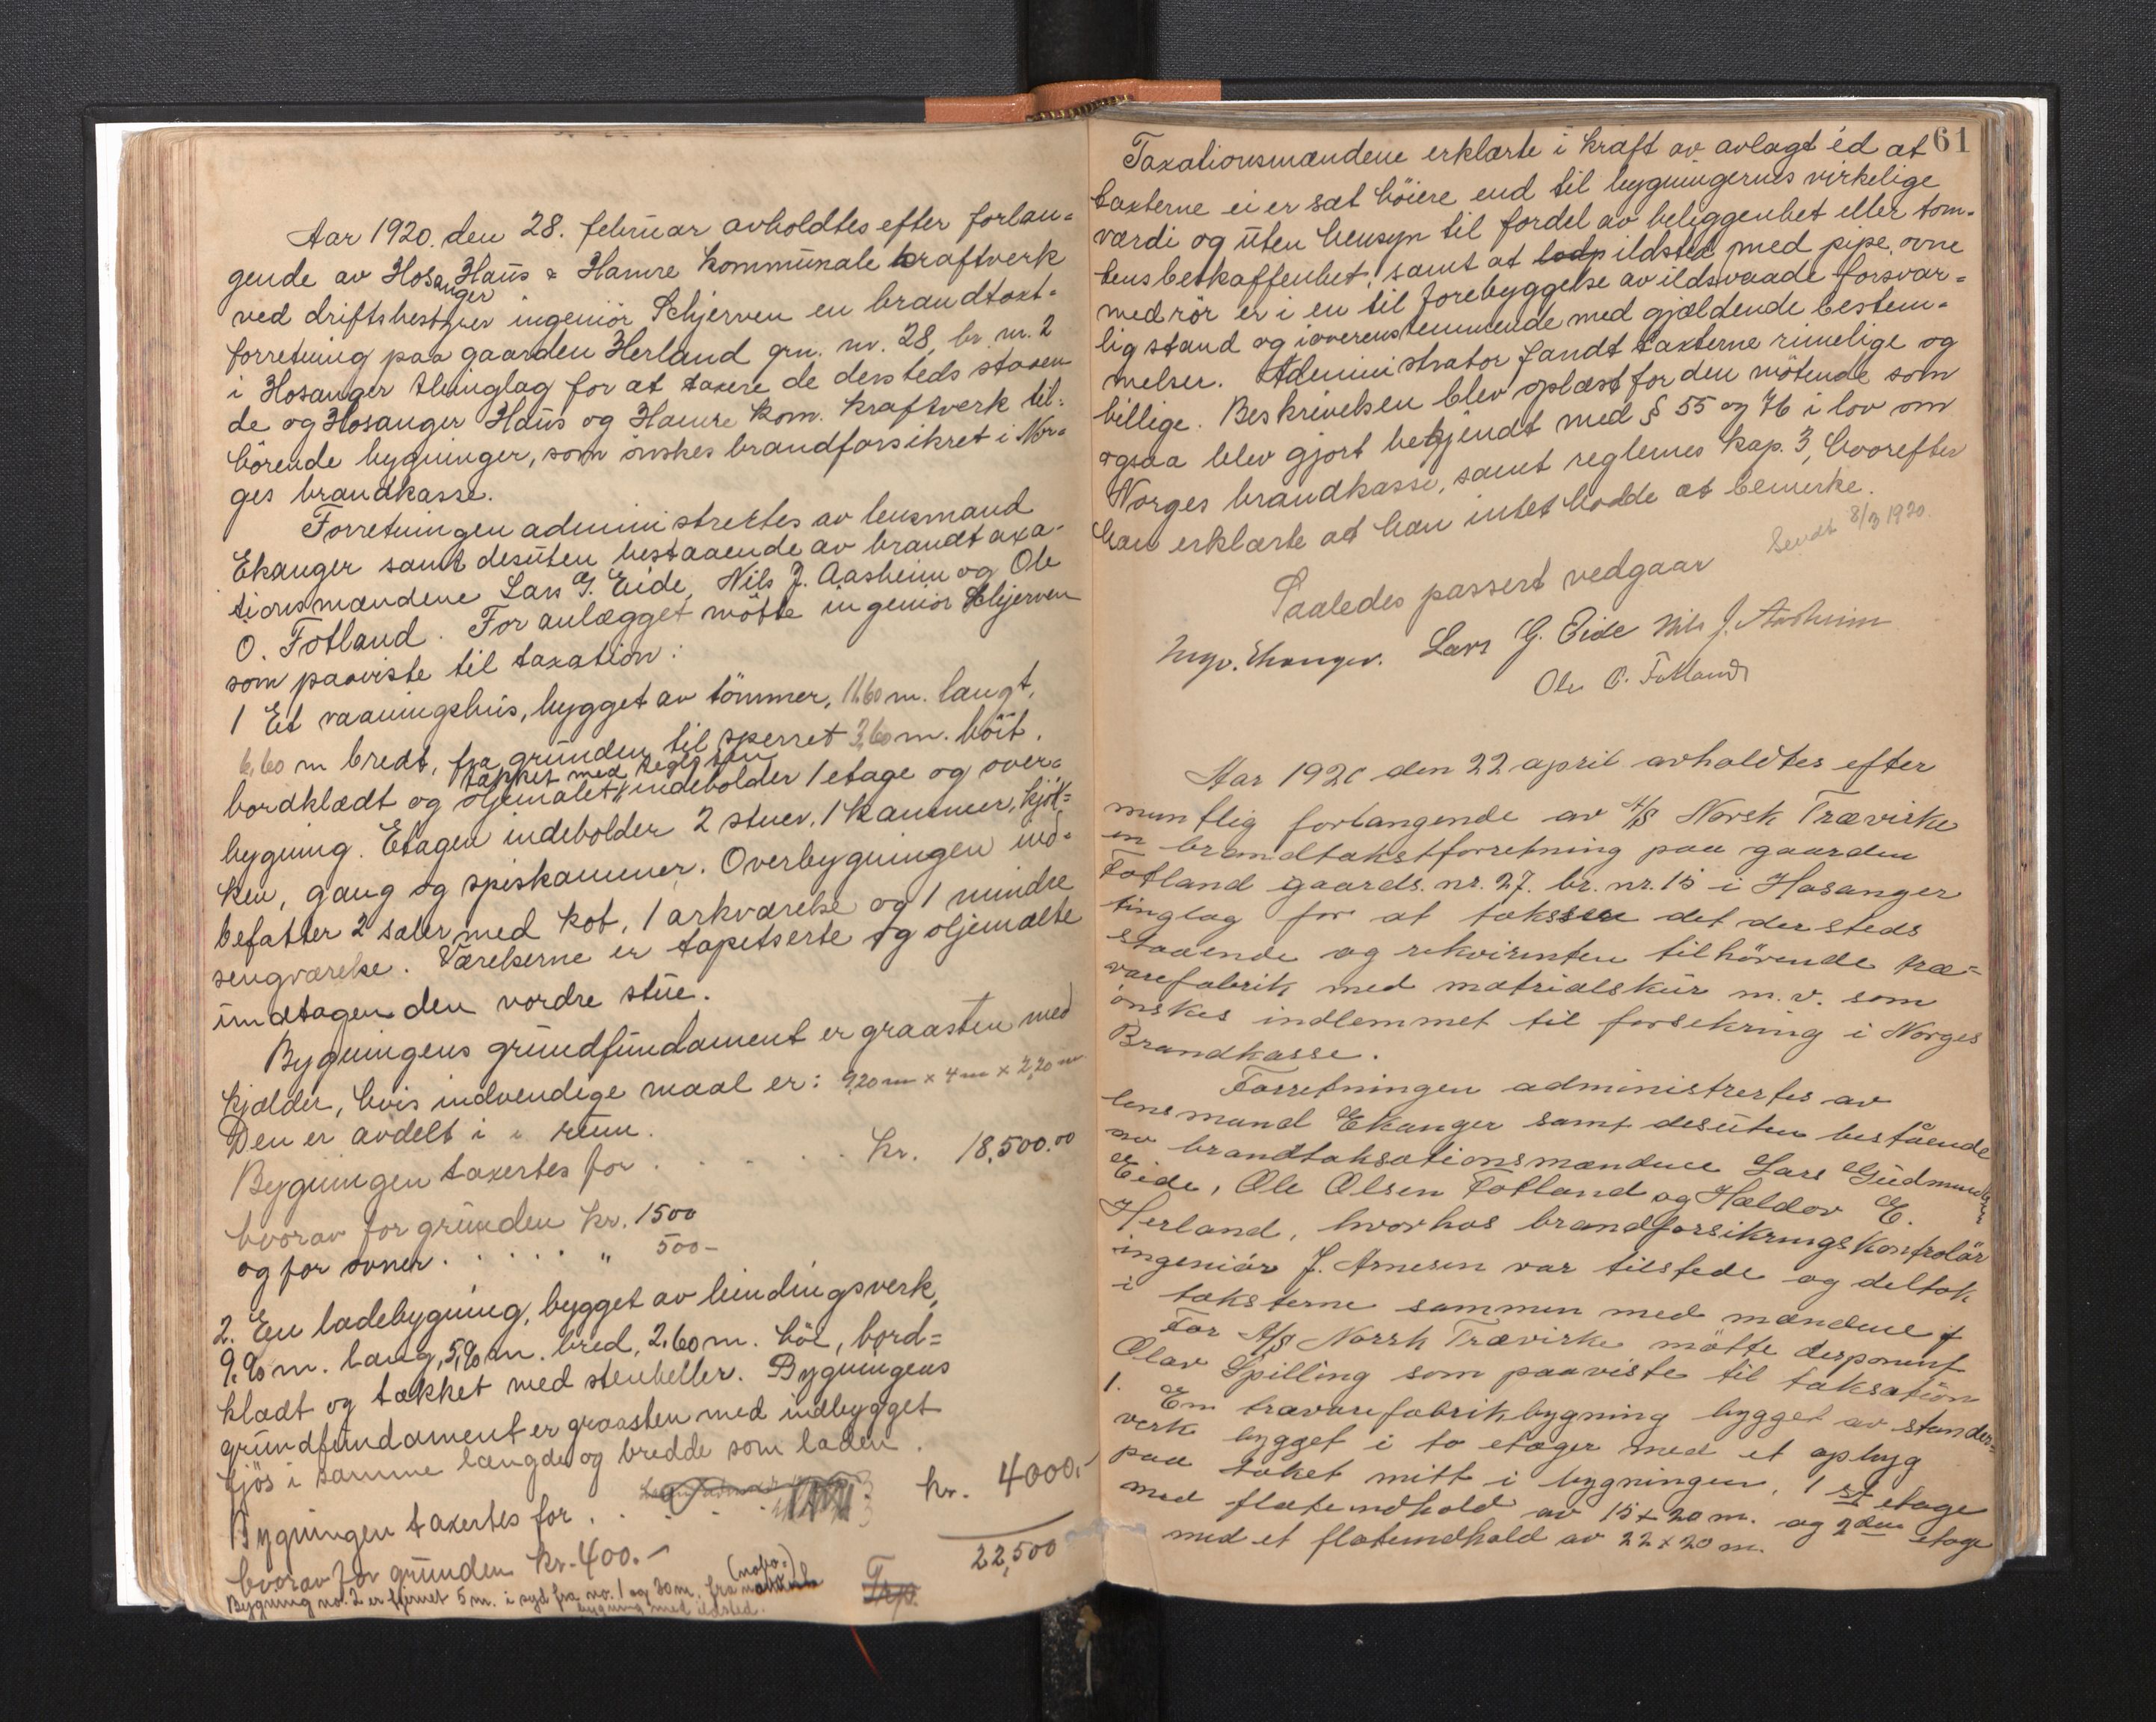 Aar 1920. den 28. februar avholdtes efter forlan-
gende av Hosanger Haus & Hamre kommunale kraftverk
ved driftsbestyrer ingeniör Schjerven en brandtaxt-
forretning paa gaarden Herland grn. nr. 28, br. nr. 2
i Hosanger thinglag for at taxere de dersteds staaen
de og Hosanger Haus og Hamre kom. kraftverk til-
hörende bygninger, som önskes brandforsikret i Nor-
ges brandkasse.
Forretningen administrertes av lensmand
Ekanger samt desuten bestaaende av brandtaxa-
tionsmændene Lars G. Eide, Nils J. Aasheim og Ole
O. Fotland. For anlægget mötte ingeniör Schjerven
som paaviste til taxation:
1 Et vaaningshus, bygget av tömmer, 11.60 m. langt,
6,60 m bredt, fra grunden til sperret 3,60 m. höit.
takket med teglsten
bordklædt og oljemalet, indeholder 1 etage og over-
bygning. Etagen indeholder 2 stuer, 1 kammer, kjök-
ken, gang og spiskammer. Overbygningen ind-
befatter 2 saler med kot, 1 arkværelse og 1 mindre
sengværelse. Værelserne er tapetserte og oljemalte
undtagen den nordre stue.
Bygningens grundfundament er graasten med
kjælder, hvis indvendige maal er: 9,20 m x 4 m x 2,20 m.
Den er avdelt i rum.
Bygningen taxertes for . . . . . kr. 18,500.00
hvorav for grunden kr. 1500
og for ovner . . . . . " 500-
2. En ladebygning, bygget av bindingsverk,
9.90 m. lang, 5,90 m. bred, 2.60 m. höi, bord-
klædt og tækket med stenheller. Bygningens
grundfundament er graasten med indbygget
fjös i samme længde og bredde som laden.
Bygningen taxertes for . . . . kr. 4000.-
hvorav for grunden kr. 400.- 22,500
Bygning no. 2 er fjernet 5 m. i syd fra no. 1 og 30 m. fra (nabo-)
bygning med ildsted. Trp.
61
Taxationsmændene erklærte i kraft av avlagt éd at
taxterne ei er sat höiere end til bygningernes virkelige
værdi og uten hensyn til fordel av beliggenhet eller tom-
tens beskaffenhet, samt at ildsted med pipe, ovne
med rör er i en til forebyggelse av ildsvaade forsvar-
lig stand og i overenstemmende med gjældende bestem-
melser. Administrator fandt taxterne rimelige og
billige. Beskrivelsen blev oplæst for den mötende som
ogsaa blev gjort bekjendt med § 55 og 76 i lov om
Norges brandkasse, samt reglernes kap. 3, hvorefter
han erklærte at han intet hadde at bemerke.
Sendt 8/3 1920.
Saaledes passert vedgaar
Ingv. Ekanger. Lars G. Eide Nils J. Aasheim
Ole O. Fotland
Aar 1920 den 22 april avholdtes efter
muntlig forlangende av A/S Norsk Trævirke
en brandtakstforretning paa gaarden
Fotland gaards. nr. 27. br. nr. 15 i Hosanger
tinglag for at taksere det der steds
staaende og rekvirenten tilhörende træ-
varefabrik med matrialskur m. v. som
önskes indlemmet til forsekring i Norges
Brandkasse.
Forretningen administrertes av
lensmand Ekanger samt desuten bestående
av brandtaksationsmændene Lars Gudmundsen
Eide, Ole Olsen Fotland og Haldor E.
Herland, hvorhos brandforsikringskontrolör
ingeniör J. Arnesen var tilstede og deltok
i taksterne sammen med mændene
For A/S Norsk Trævirke mötte disponent
Olav Spilling som paaviste til taksation
1. En trævarefabrikbygning bygget av stender-
verk bygget i to etager med et opbyg
paa taket mitt i bygningen, 1 st etage
med flateindhold av 15 x 20 m. og 2den etage
med et flateindhold av 22 x 20 m.